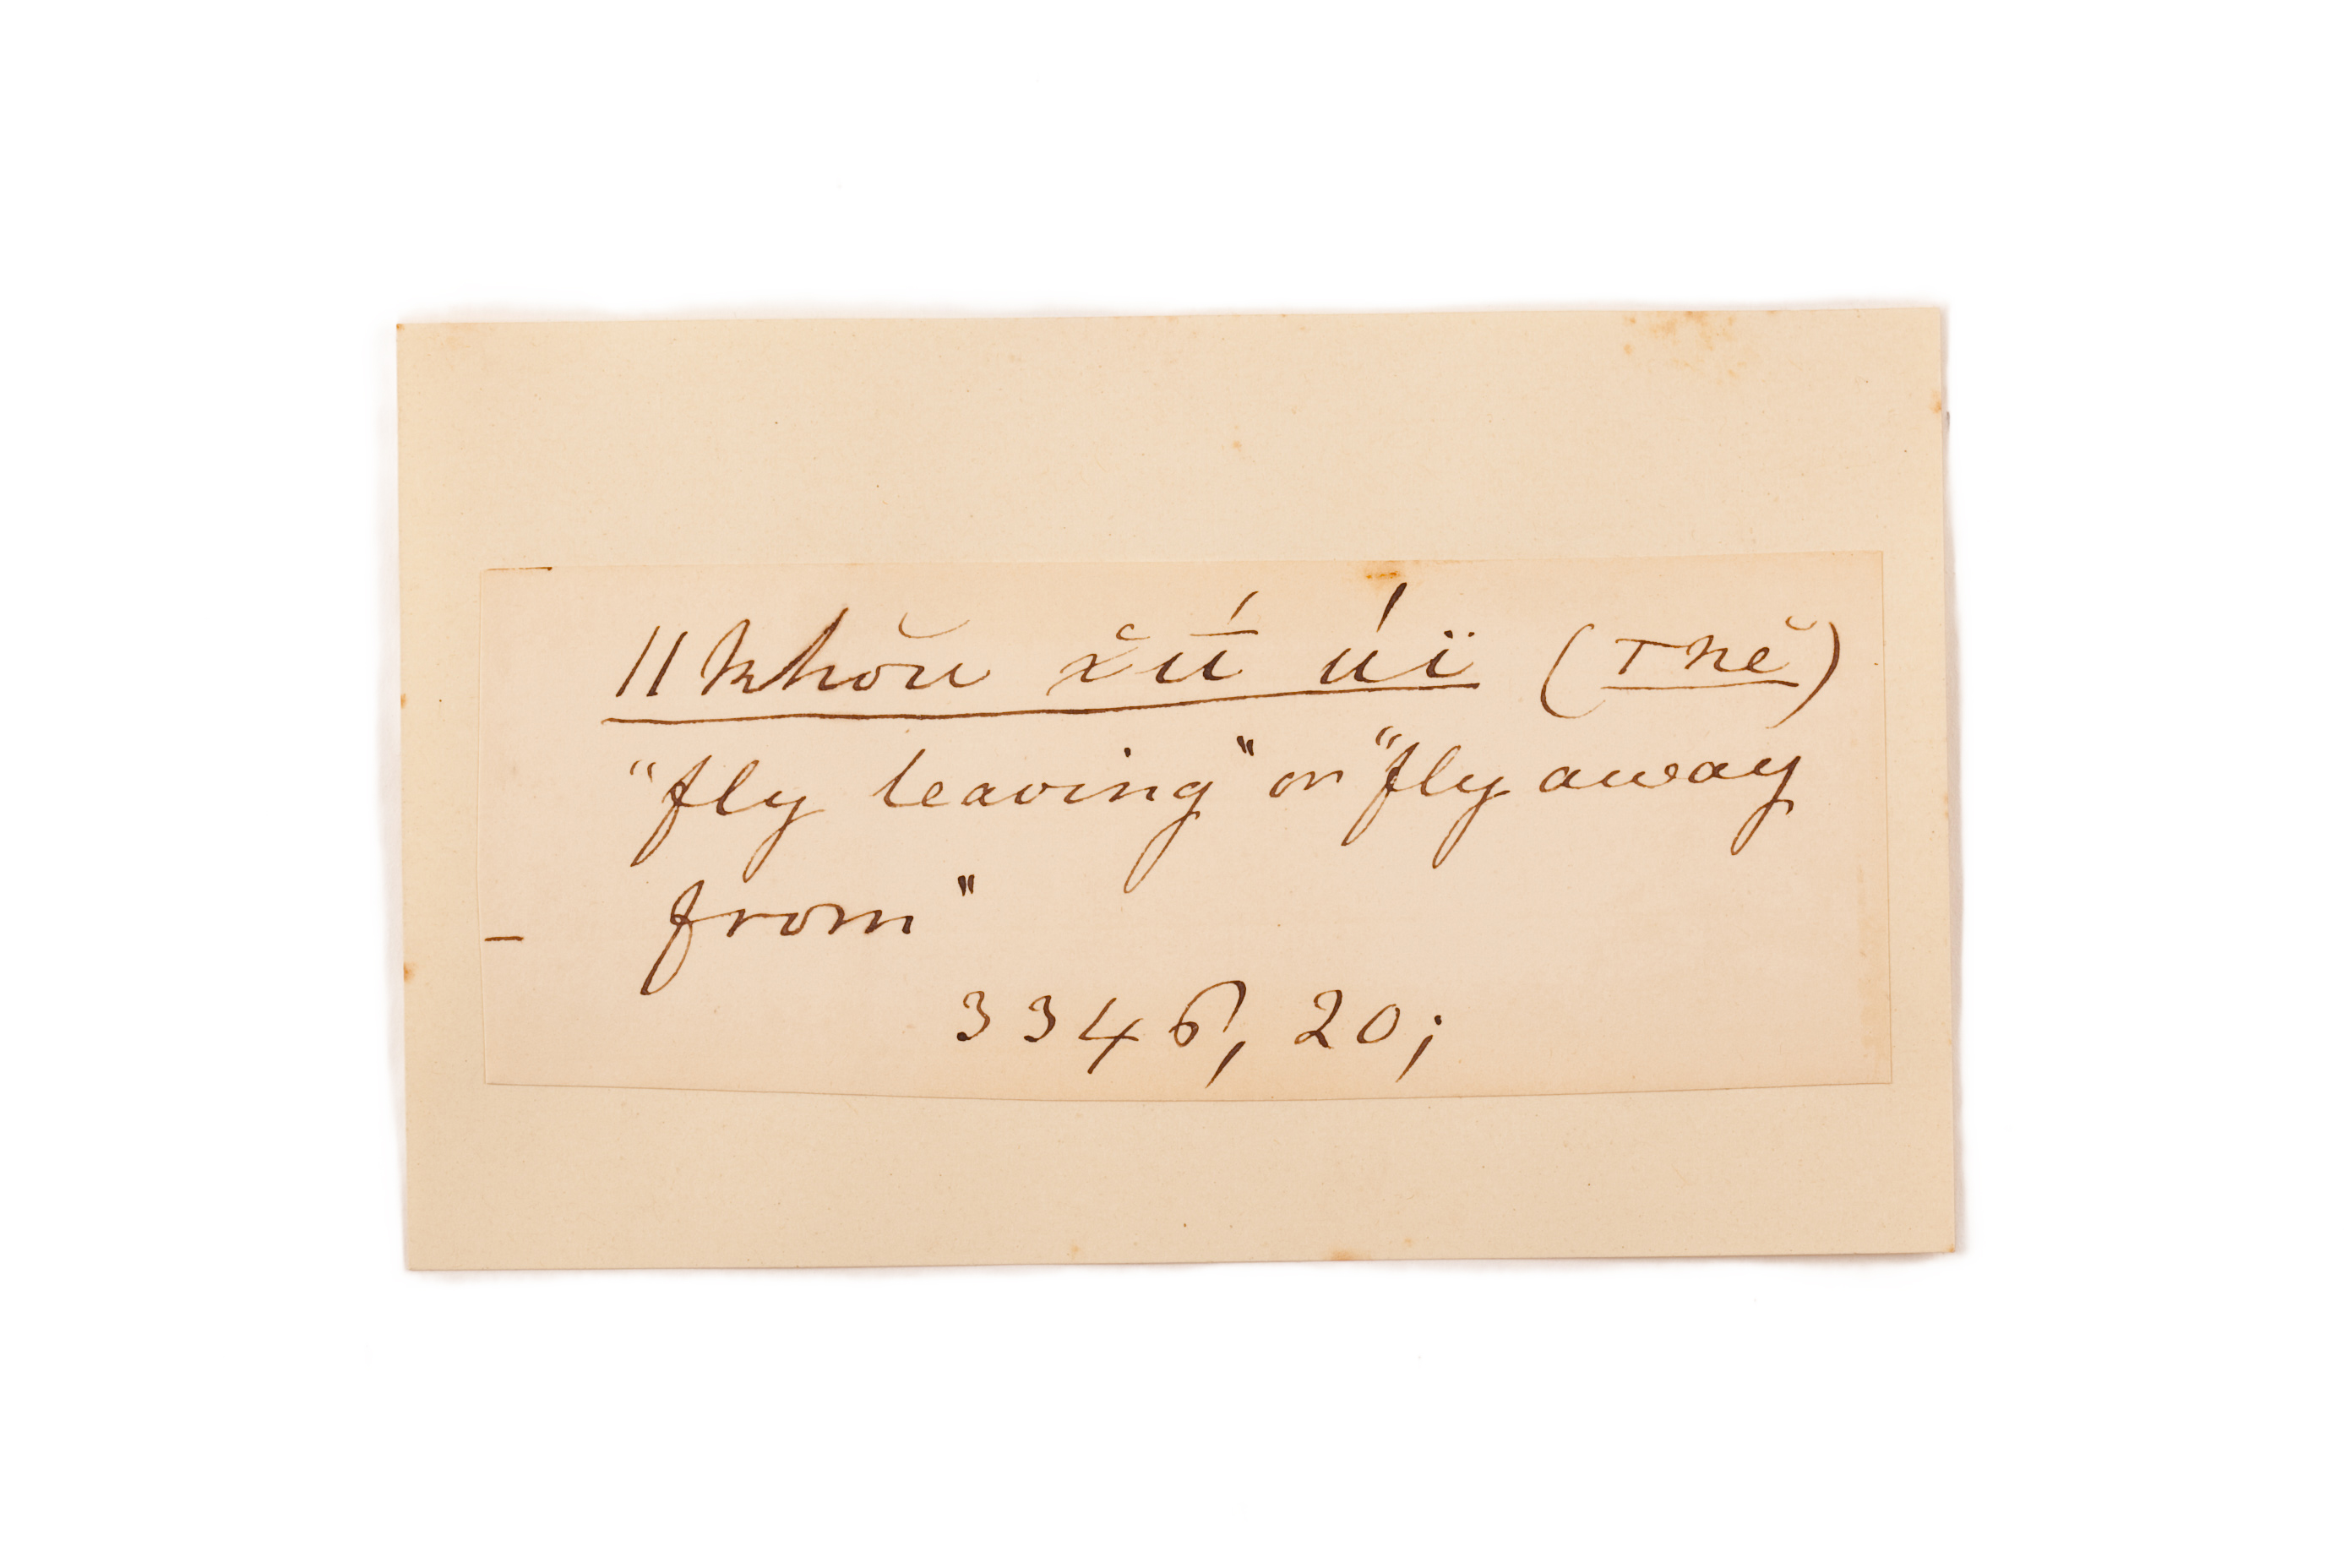 ǁkhŏu x̆ū́ úï (Tnĕ)
"fly leaving" or "fly away
from"
3346, 20;